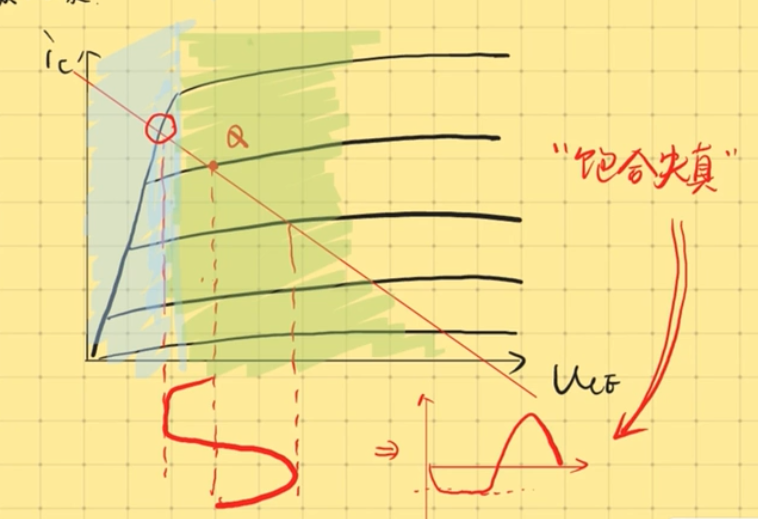 i_C
Q
"饱合失真"
U_CE
⇒